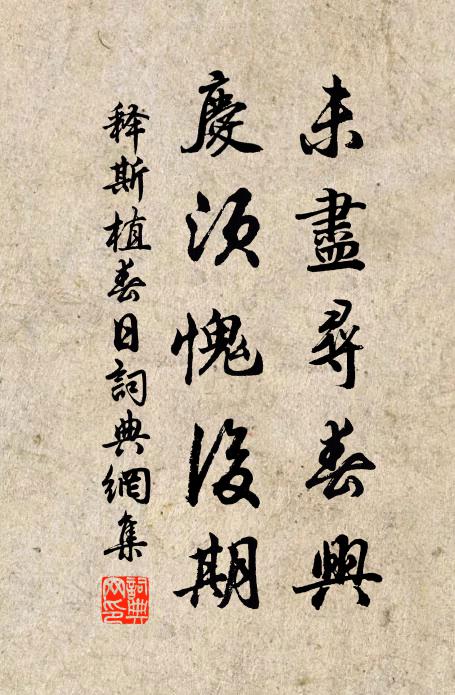 未盡尋春興
慶須愧後期
释斯植春日詞典網集
詞典网印